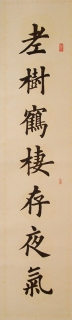 老樹鶴棲存夜氣